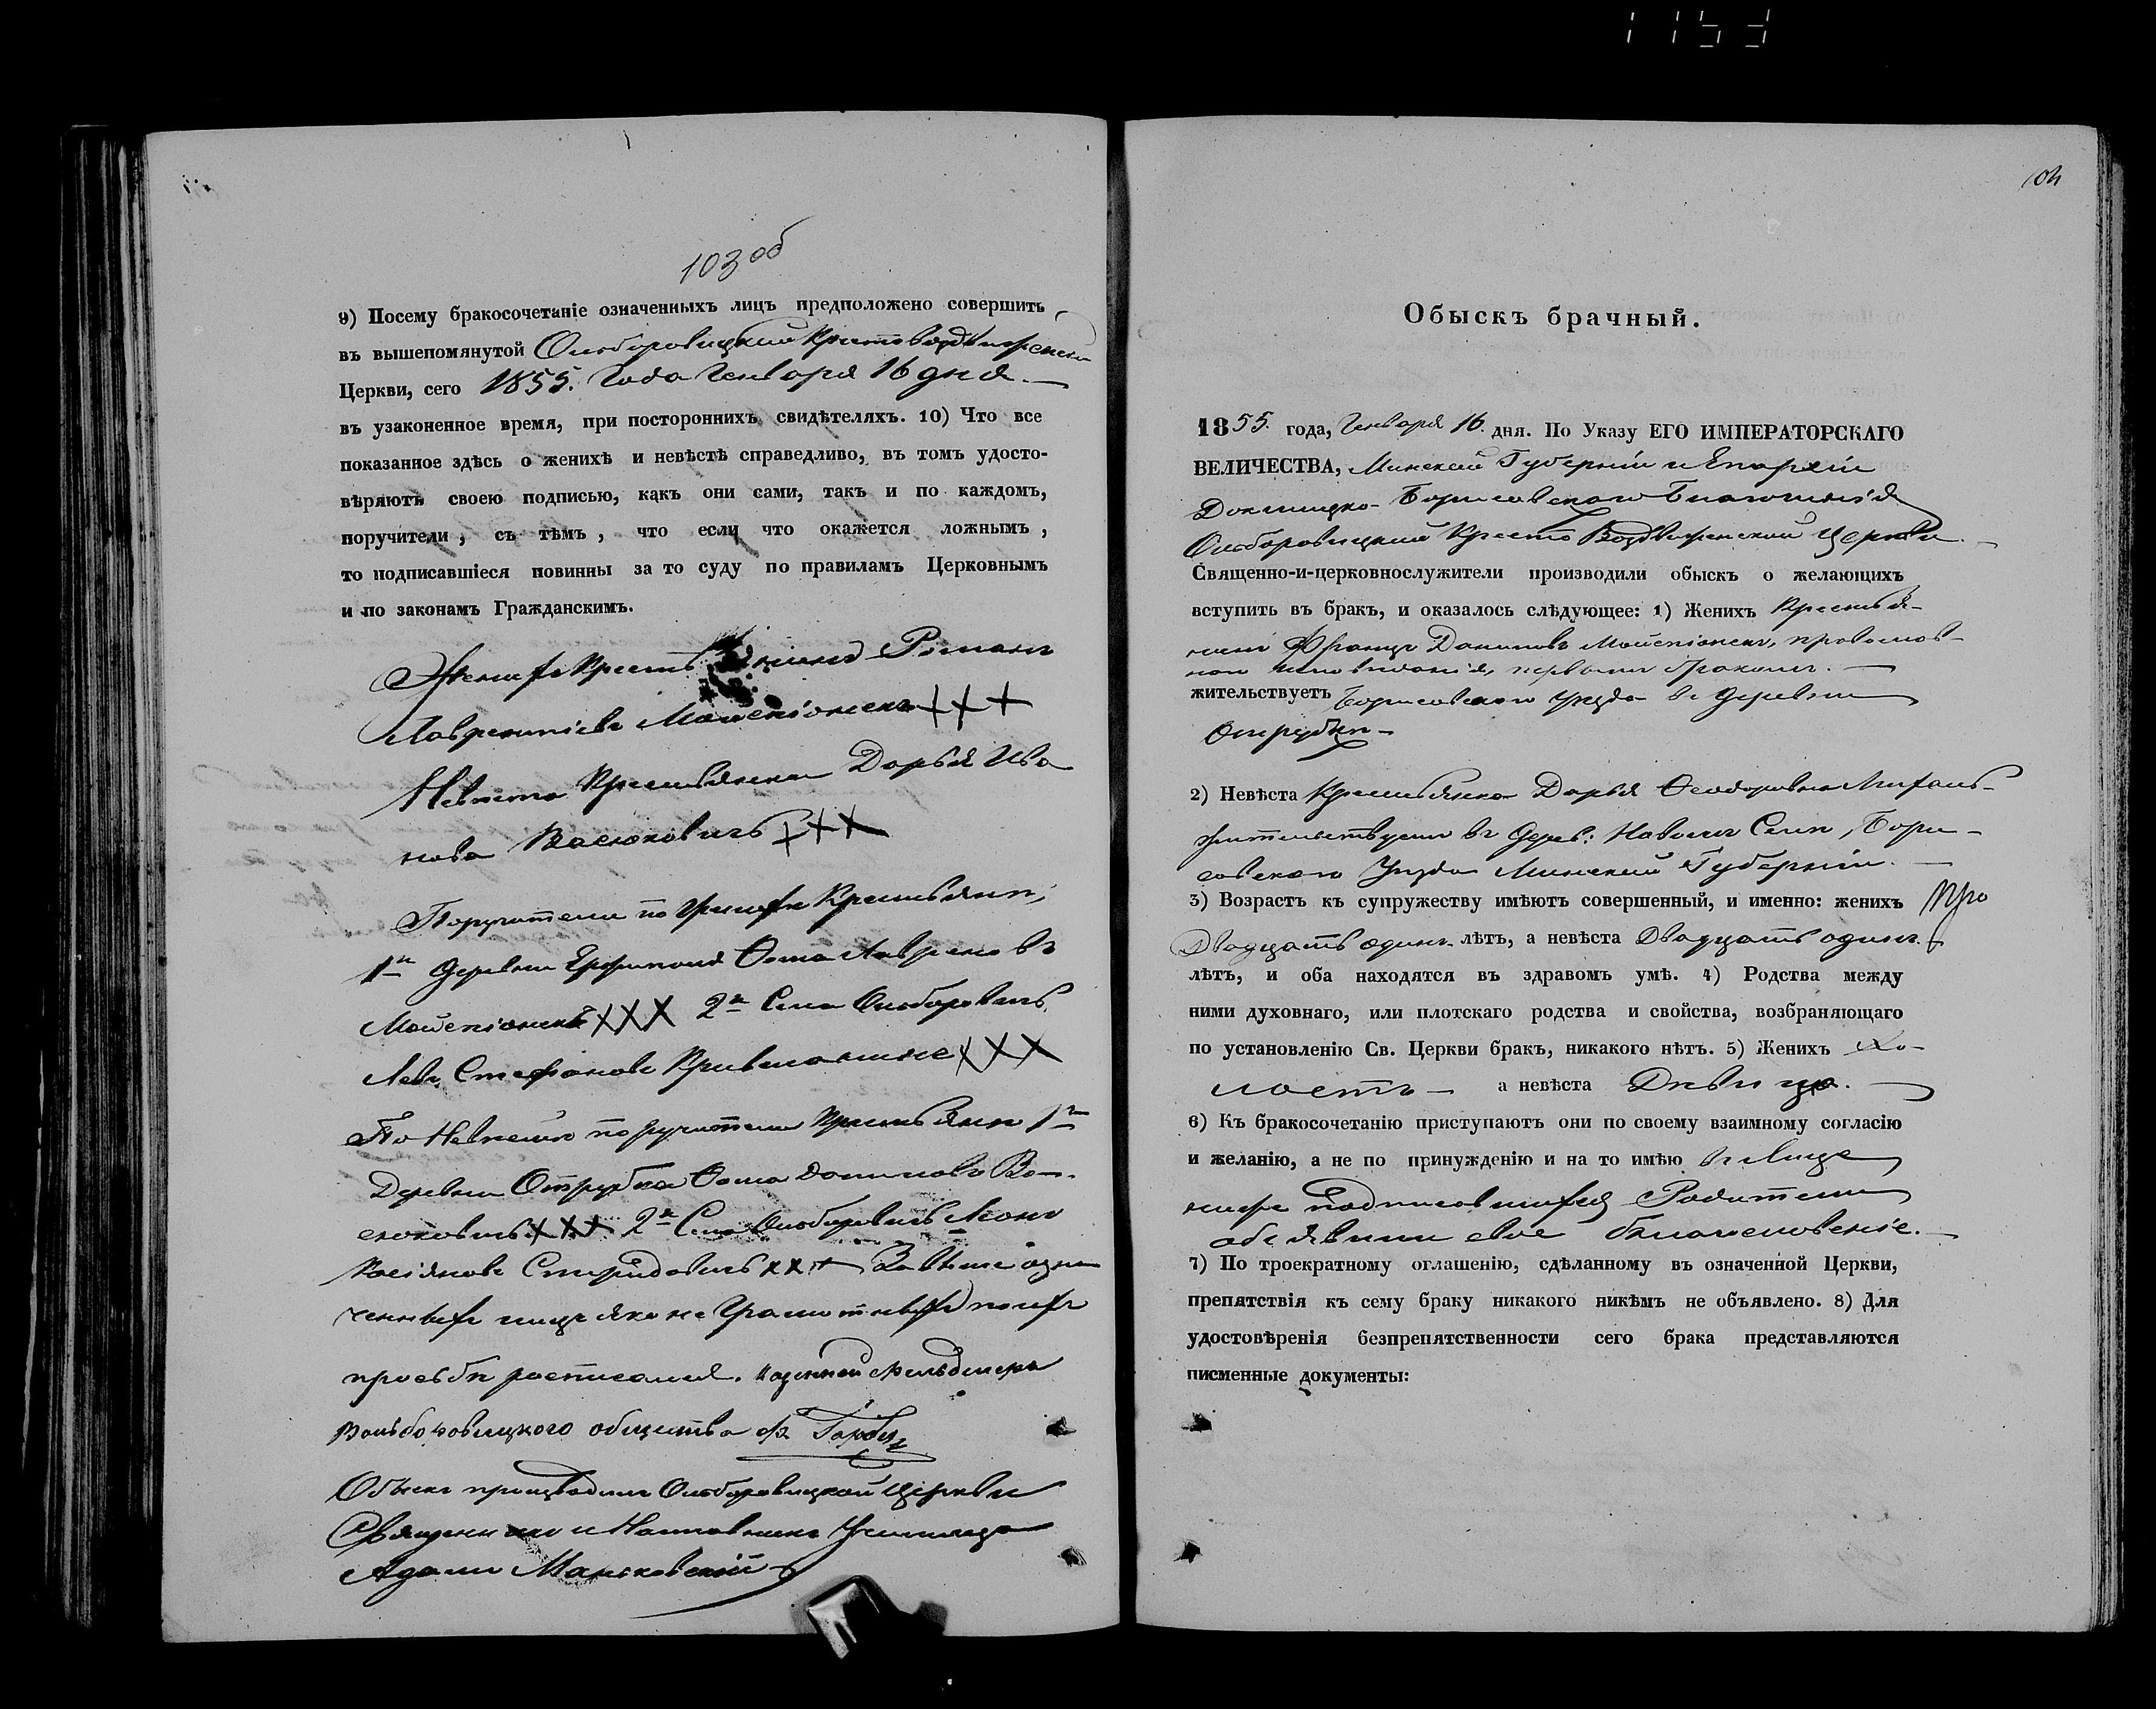 1153
103 об
9) Посему бракосочетаніе означенныхъ лицъ предположено совершить
въ вышепомянутой
Церкви, сего 1855. Года Генваря 16 дня.
въ узаконенное время, при постороннихъ свидѣтеляхъ. 10) Что все
показанное здѣсь о женихѣ и невѣстѣ справедливо, въ томъ удосто-
вѣряютъ своею подписью, какъ они сами, такъ и по каждомъ,
поручители, съ тѣмъ, что если что окажется ложнымъ,
то подписавшіеся повинны за то суду по правиламъ Церковнымъ
и по законамъ Гражданскимъ.
Женихъ Романъ
Лаврентіевъ +++
Невѣста Крестьянка Дарья Ива
нова Васюковичъ +++
Поручители по Женихѣ Крестьяне,
1й Деревни Ѳома
XXX 2й Села
Левъ Стефановъ XXX
По Невѣстѣ поручители Крестьяне 1й
Деревни Отрубка Ѳома Даниловъ Ва-
сюковичъ XXX 2й Села
ххх За
ченныхъ лицъ яко не Грамотныхъ по ихъ
прозьбѣ росписался.
общества
Обыскъ производилъ Церкви
Священникъ и Наставникъ Училища
Адамъ Маньковскій
104
Обыскъ брачный.
1855. года, Генваря 16. дня. По Указу ЕГО ИМПЕРАТОРСКАГО
ВЕЛИЧЕСТВА, Минской Губерніи и Епархіи
Докшицко-Борисовскаго Благочинія
Кресто Воздвиженской Церкви
Священно-и-церковнослужители производили обыскъ о желающихъ
вступить въ бракъ, и оказалось слѣдующее: 1) Женихъ Крестья-
нинъ Францъ Даниловъ православ-
наго исповѣданія, первымъ бракомъ.
жительствуетъ Борисовскаго уѣзда въ деревни
Отрубкѣ
2) Невѣста Крестьянка Дарья Ѳеодоровна
жительствуетъ въ дерев: Новомъ Селѣ, Бори-
совскаго Уѣзда Минской Губерніи.
3) Возрастъ къ супружеству имѣютъ совершенный, и именно: женихъ
Двадцать одинъ лѣтъ, а невѣста Двадцать одинъ
лѣтъ, и оба находятся въ здравомъ умѣ. 4) Родства между
ними духовнаго, или плотскаго родства и свойства, возбраняющаго
по установленію Св. Церкви бракъ, никакого нѣтъ. 5) Женихъ Хо-
лостъ а невѣста Дѣвица.
6) Къ бракосочетанію приступаютъ они по своему взаимному согласію
и желанію, а не по принужденію и на то имѣю
ниже подписавшихся Родители
объявили свое благословеніе.
7) По троекратному оглашенію, сдѣланному въ означенной Церкви,
препятствія къ сему браку никакого никѣмъ не объявлено. 8) Для
удостовѣренія безпрепятственности сего брака представляются
писменные документы: